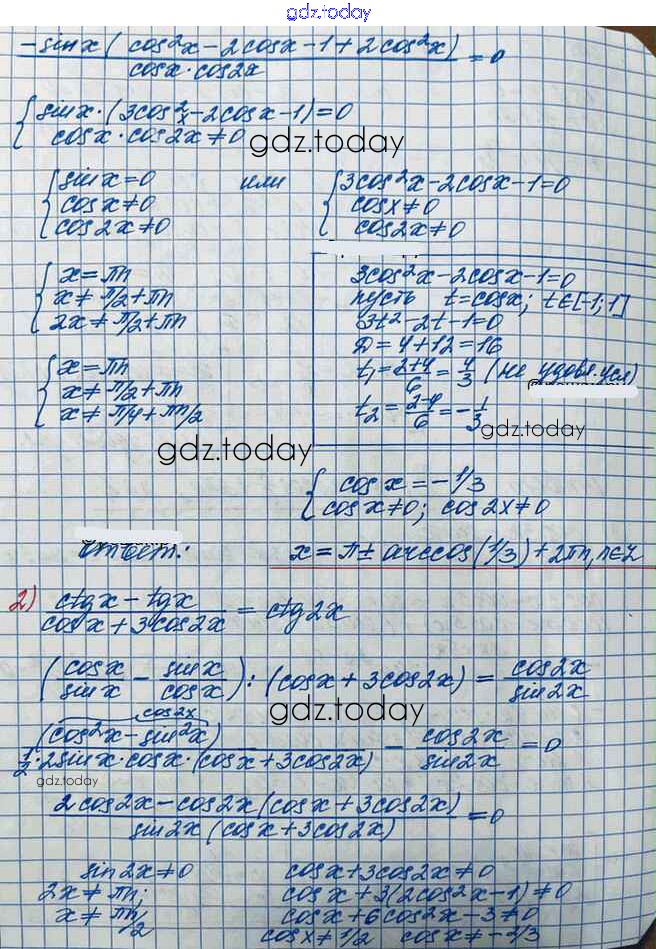 gdz.today
-sinx(cos²x-2cosx-1+2cos²x) / cosx·cos2x = 0
{ sinx·(3cos²x-2cosx-1)=0
cosx·cos2x≠0
gdz.today
{ sinx=0
cosx≠0
cos2x≠0
или
{ 3cos²x-2cosx-1=0
cosx≠0
cos2x≠0
{ x=πn
x≠π/2+πn
2x≠π/2+πn
{ x=πn
x≠π/2+πn
x≠π/4+πn/2
3cos²x-2cosx-1=0
пусть t=cosx; t∈[-1;1]
3t²-2t-1=0
D=4+12=16
t₁=2+4/6=4/3 (не удовл. усл)
t₂=2-4/6=-1/3
gdz.today
gdz.today
{ cosx=-1/3
cosx≠0; cos2x≠0
Ответ: x=π±arccos(1/3)+2πn, n∈Z
2) ctgx-tgx / cosx+3cos2x = ctg2x
(cosx/sinx - sinx/cosx):(cosx+3cos2x) = cos2x/sin2x
gdz.today
cos2x
(cos²x-sin²x) / ½·2sinx·cosx·(cosx+3cos2x) - cos2x/sin2x = 0
gdz.today
2cos2x-cos2x(cosx+3cos2x) / sin2x(cosx+3cos2x) = 0
sin2x≠0
2x≠πn;
x≠πn/2
cosx+3cos2x≠0
cosx+3(2cos²x-1)≠0
cosx+6cos²x-3≠0
cosx≠1/2 cosx≠-2/3